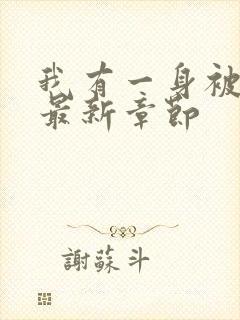 我有一身被
最新章節
謝蘇斗